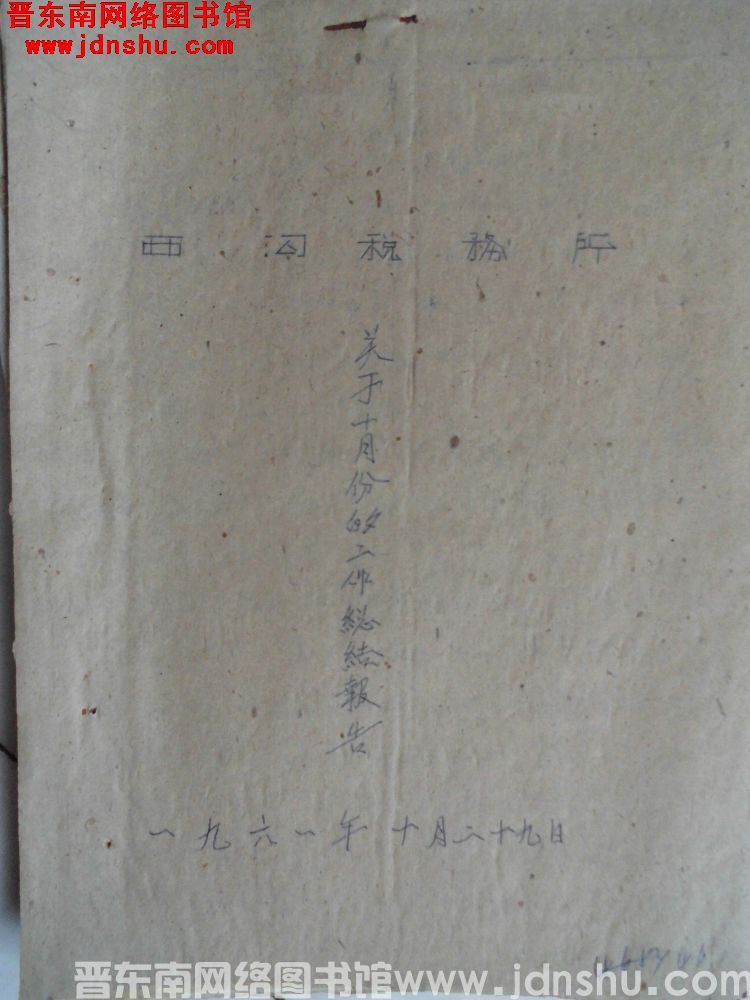 晋东南网络图书馆
www.jdnshu.com
西沟税務所
关于十月份的工作總結報告
一九六一年十月二十九日
晋东南网络图书馆www.jdnshu.com